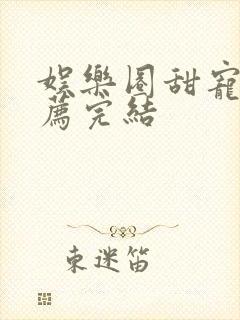 娛樂圈甜寵
薦完結
束迷笛